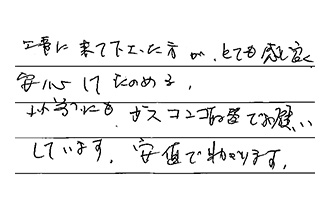 工事に来て下さった方が、とても感じ良く
安心してたのめる。
以前にも、ガスコンロ取替でお願い
しています。安値でわかります。